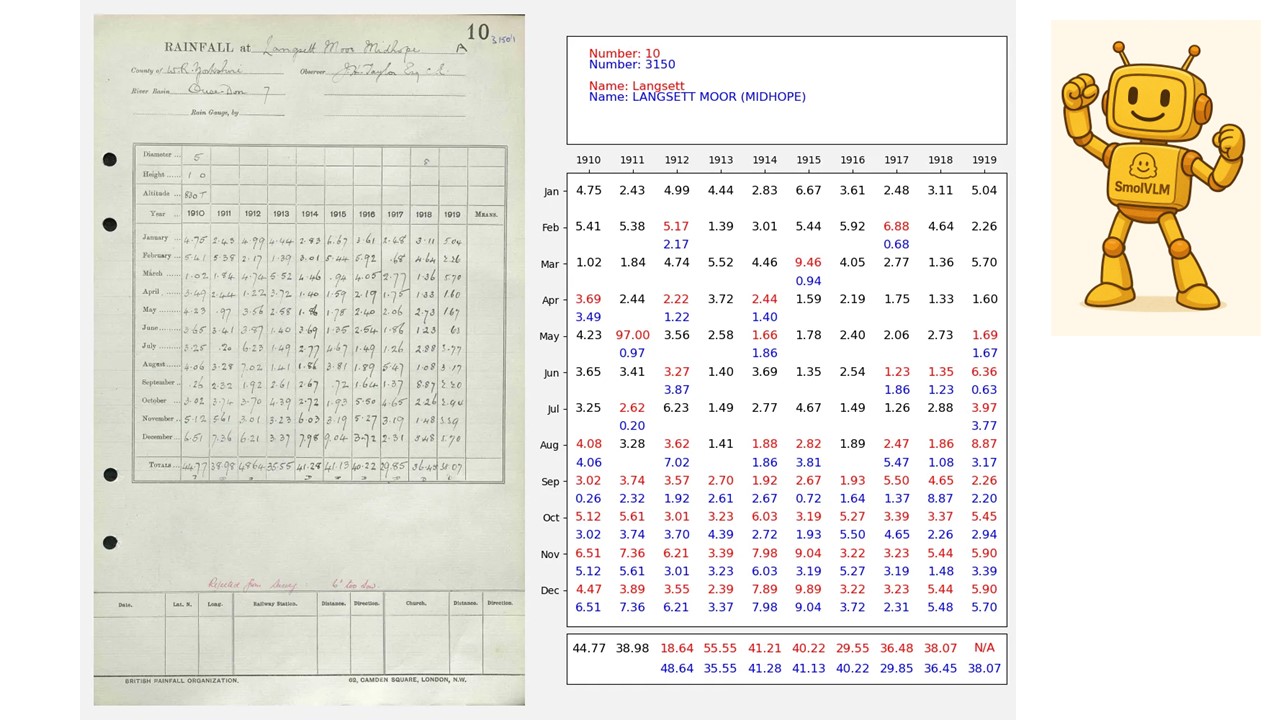 10
3150/1
RAINFALL at Langsett Moor Midhope A
County of W.R. Yorkshire Observer
River Basin Ouse-Don 7
Rain Gauge, by
Diameter ... 5 5
Height ...... 1 0
Altitude ... 830T
Year ... 1910 1911 1912 1913 1914 1915 1916 1917 1918 1919 MEANS.
January 4.75 2.43 4.99 4.44 2.83 6.67 3.61 2.48 3.11 5.04
February 5.41 5.38 2.17 1.39 3.01 5.44 5.92 .68 4.64 2.26
March 1.02 1.84 4.74 5.52 4.46 .94 4.05 2.77 1.36 5.70
April 3.49 2.44 1.22 3.72 1.40 1.59 2.19 1.75 1.33 1.60
May 4.23 .97 3.56 2.58 1.86 1.78 2.40 2.06 2.73 1.67
June 3.65 3.41 3.87 1.40 3.69 1.35 2.54 1.86 1.23 .63
July 3.25 .20 6.23 1.49 2.77 4.67 1.49 1.26 2.88 3.77
August 4.06 3.28 7.02 1.41 1.86 3.81 1.89 5.47 1.08 3.17
September .26 2.32 1.92 2.61 2.67 .72 1.64 1.37 8.87 2.20
October 3.02 3.74 3.70 4.39 2.72 1.93 5.50 4.65 2.26 2.94
November 5.12 5.61 3.01 3.23 6.03 3.19 5.27 3.19 1.48 3.39
December 6.51 7.36 6.21 3.37 7.98 9.04 3.72 2.31 5.48 5.70
TOTALS 44.77 38.98 48.64 35.55 41.28 41.13 40.22 29.85 36.45 38.07
Rejected from Survey 6" too low.
Date. Lat. N. Long. Railway Station. Distance. Direction. Church. Distance. Direction.
BRITISH RAINFALL ORGANIZATION. 62, CAMDEN SQUARE, LONDON, N.W.
Number: 10
Number: 3150
Name: Langsett
Name: LANGSETT MOOR (MIDHOPE)
1910 1911 1912 1913 1914 1915 1916 1917 1918 1919
Jan 4.75 2.43 4.99 4.44 2.83 6.67 3.61 2.48 3.11 5.04
Feb 5.41 5.38 5.17 1.39 3.01 5.44 5.92 6.88 4.64 2.26
2.17 0.68
Mar 1.02 1.84 4.74 5.52 4.46 9.46 4.05 2.77 1.36 5.70
0.94
Apr 3.69 2.44 2.22 3.72 2.44 1.59 2.19 1.75 1.33 1.60
3.49 1.22 1.40
May 4.23 97.00 3.56 2.58 1.66 1.78 2.40 2.06 2.73 1.69
0.97 1.86 1.67
Jun 3.65 3.41 3.27 1.40 3.69 1.35 2.54 1.23 1.35 6.36
3.87 1.86 1.23 0.63
Jul 3.25 2.62 6.23 1.49 2.77 4.67 1.49 1.26 2.88 3.97
0.20 3.77
Aug 4.08 3.28 3.62 1.41 1.88 2.82 1.89 2.47 1.86 8.87
4.06 7.02 1.86 3.81 5.47 1.08 3.17
Sep 3.02 3.74 3.57 2.70 1.92 2.67 1.93 5.50 4.65 2.26
0.26 2.32 1.92 2.61 2.67 0.72 1.64 1.37 8.87 2.20
Oct 5.12 5.61 3.01 3.23 6.03 3.19 5.27 3.39 3.37 5.45
3.02 3.74 3.70 4.39 2.72 1.93 5.50 4.65 2.26 2.94
Nov 6.51 7.36 6.21 3.39 7.98 9.04 3.22 3.23 5.44 5.90
5.12 5.61 3.01 3.23 6.03 3.19 5.27 3.19 1.48 3.39
Dec 4.47 3.89 3.55 2.39 7.89 9.89 3.22 3.23 5.44 5.90
6.51 7.36 6.21 3.37 7.98 9.04 3.72 2.31 5.48 5.70
44.77 38.98 18.64 55.55 41.21 40.22 29.55 36.48 38.07 N/A
48.64 35.55 41.28 41.13 40.22 29.85 36.45 38.07
SmolVLM